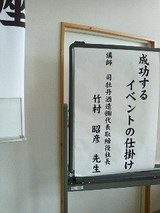 座
成功する
イベントの仕掛け
講師 司牡丹酒造㈱代表取締役社長
竹村 昭彦 先生